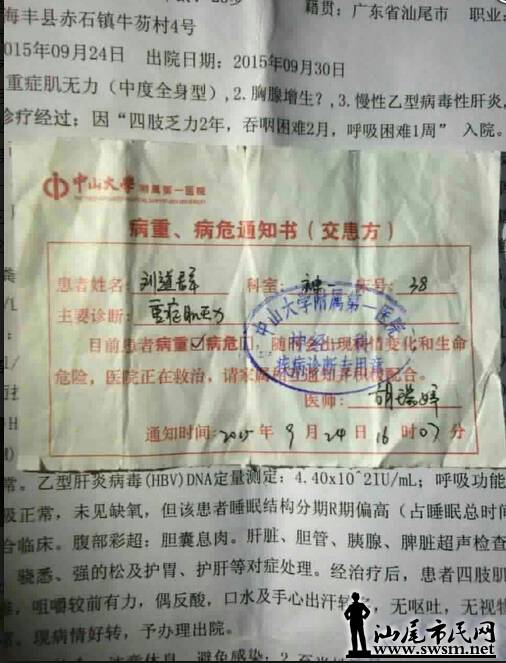 籍贯：广东省汕尾市 职业：
海丰县赤石镇牛芴村4号
2015年09月24日 出院日期：2015年09月30日
重症肌无力（中度全身型），2.胸腺增生？,3.慢性乙型病毒性肝炎,
诊疗经过：因“四肢乏力2年，吞咽困难2月，呼吸困难1周” 入院。
中山大学 附属第一医院
病重、病危通知书（交患方）
患者姓名：刘道群 科室：神一 床号：38
主要诊断：重症肌无力
目前患者病重☑病危囗，随时会出现病情变化和生命
危险，医院正在救治，请家属相互通知并积极配合。
中山大学附属第一医院
神经一科
疾病诊断专用章
医师：
通知时间：2015年9月24日16时07分
常。乙型肝炎病毒(HBV)DNA定量测定：4.40x10^2IU/mL；呼吸功能
吸正常，未见缺氧，但该患者睡眠结构分期R期偏高（占睡眠总时间
合临床。腹部彩超：胆囊息肉。肝脏、胆管、胰腺、脾脏超声检查
、骁悉、强的松及护胃、护肝等对症处理。经治疗后，患者四肢肌
，咀嚼较前有力，偶反酸，口水及手心出汗较，无呕吐，无视物
。现病情好转，予办理出院。
汕尾市民网
www.swsm.net